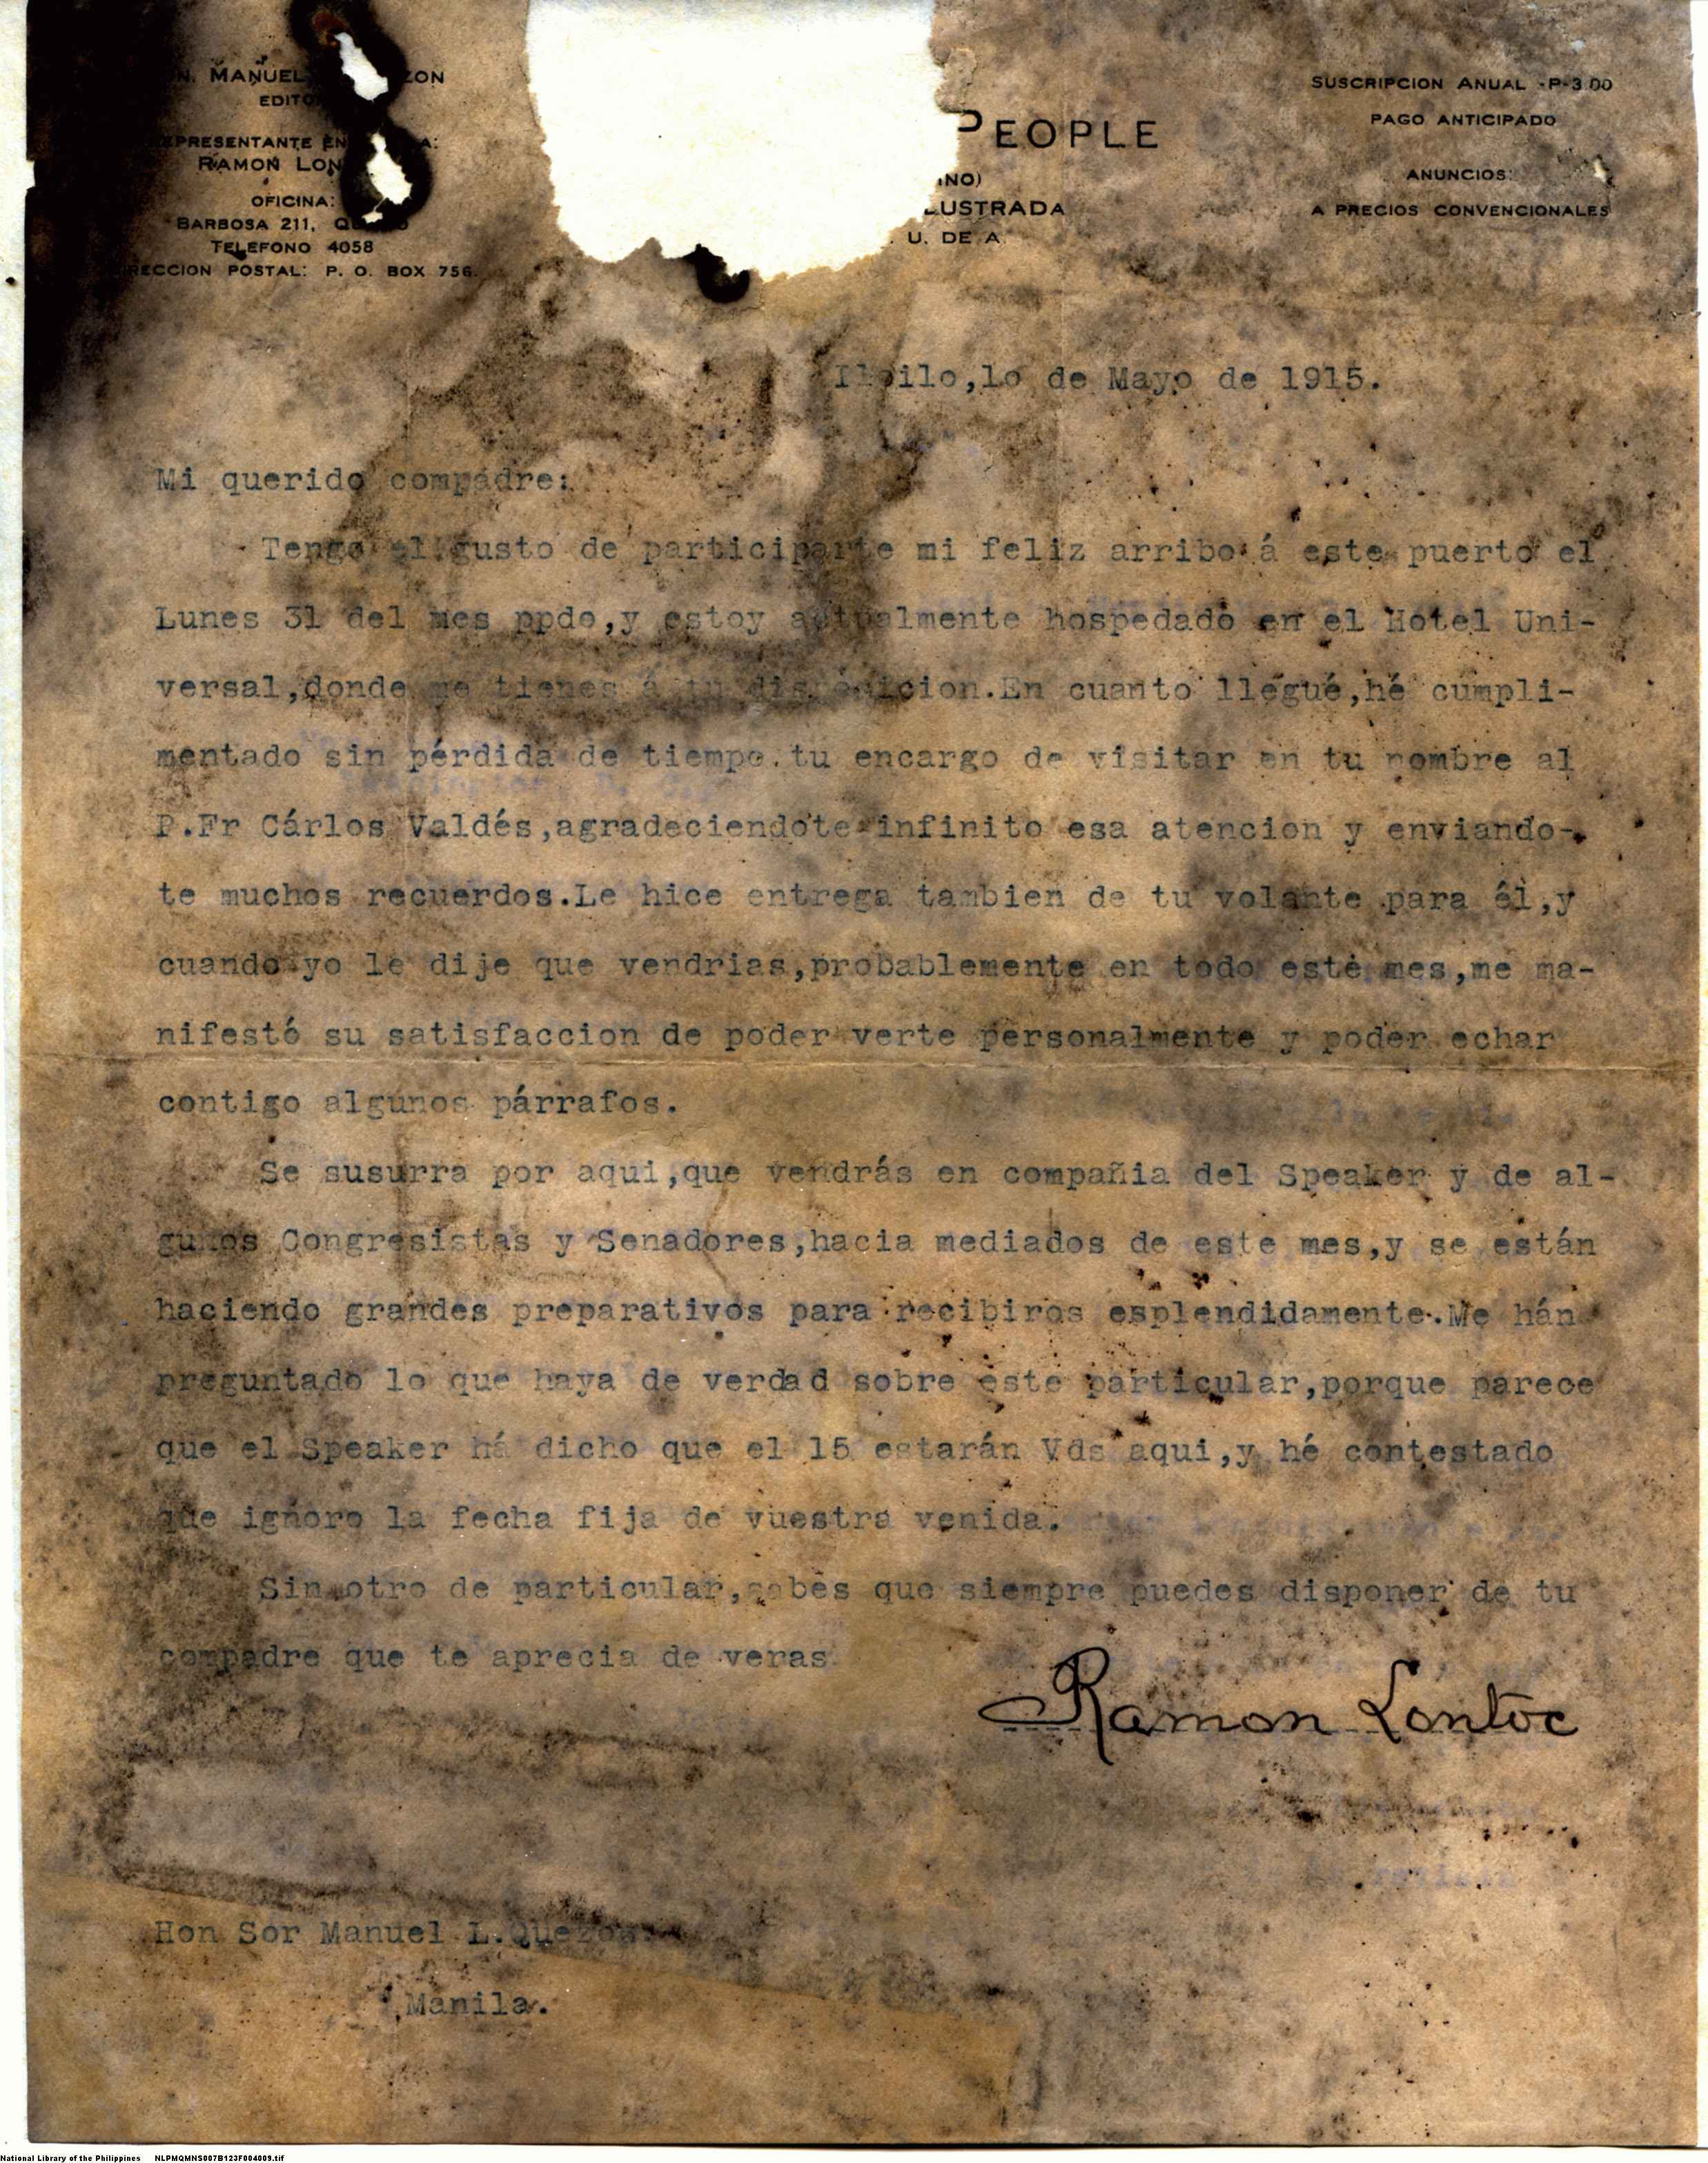 N. MANUEL ZON
EDITO
EPRESENTANTE EN A:
RAMON LON
OFICINA:
BARBOSA 211,
TELEFONO 4058
RECCION POSTAL: P. O. BOX 756.
PEOPLE
INO)
LUSTRADA
U. DE A.
SUSCRIPCION ANUAL -P-3.00
PAGO ANTICIPADO
ANUNCIOS:
A PRECIOS CONVENCIONALES
Iloilo,lo de Mayo de 1915.
Mi querido compadre:
Tengo el gusto de participarte mi feliz arribo á este puerto el
Lunes 31 del mes ppdo,y estoy actualmente hospedado en el Hotel Uni-
versal,donde me tienes á tu disposicion.En cuanto llegué,hé cumpli-
mentado sin pérdida de tiempo tu encargo de visitar en tu nombre al
P.Fr Cárlos Valdés,agradeciendote infinito esa atencion y enviando-
te muchos recuerdos.Le hice entrega tambien de tu volante para él,y
cuando yo le dije que vendrias,probablemente en todo este mes,me ma-
nifestó su satisfaccion de poder verte personalmente y poder echar
contigo algunos párrafos.
Se susurra por aqui,que vendrás en compañia del Speaker y de al-
gunos Congresistas y Senadores,hacia mediados de este mes,y se están
haciendo grandes preparativos para recibiros esplendidamente.Me hán
preguntado lo que haya de verdad sobre este particular,porque parece
que el Speaker há dicho que el 15 estarán Vds aqui,y hé contestado
que ignoro la fecha fija de vuestra venida.
Sin otro de particular,sabes que siempre puedes disponer de tu
compadre que te aprecia de veras
Ramon Lontoc
Hon Sor Manuel L.Quezon.
Manila.
National Library of the Philippines NLPMQMNS007B123F004009.tif